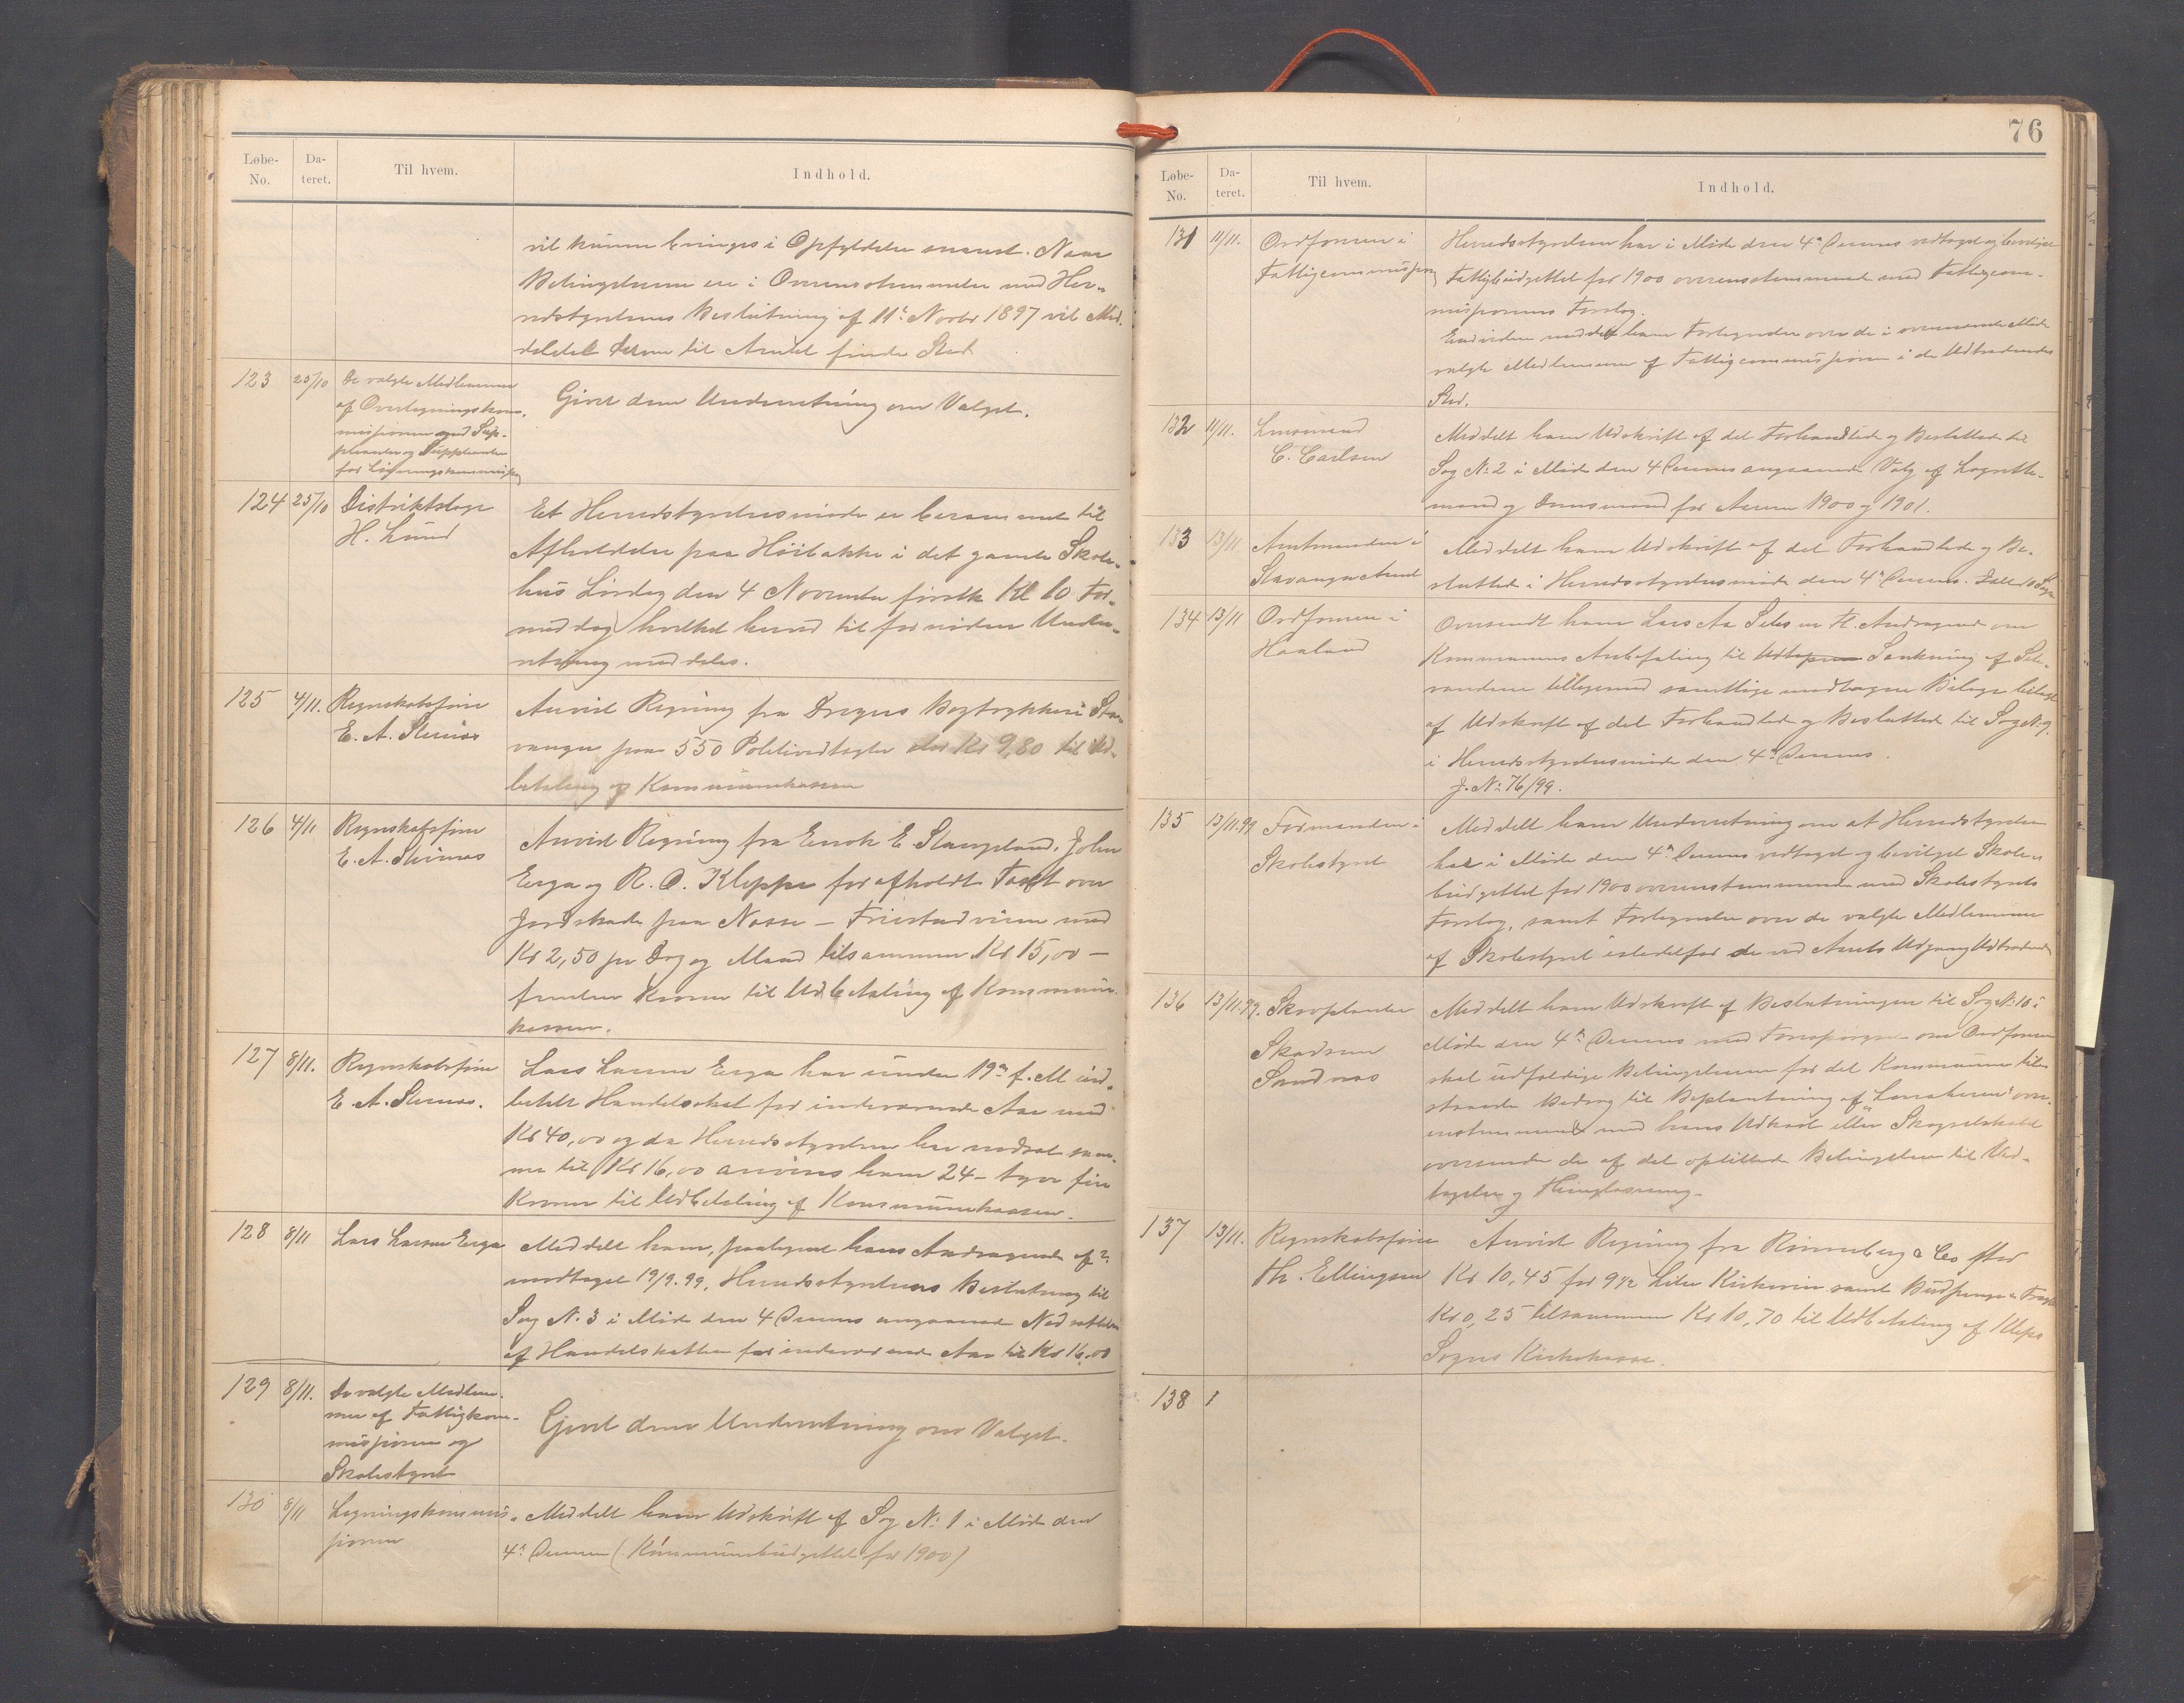 Løbe-No. Dateret. Til hvem. Indhold.
vil kunne bringes i Opfyldelse snarest. Naar
Betingelserne er i Overensstemmelse med Her-
redsstyrelsens Beslutning af 11te Novbr 1897 vil Med-
delelse derom til Amtet finde Sted.
123 25/10 De valgte Medlemmer
af Overligningskom-
missionen med Sup-
pleanter og Suppleanter
for Ligningskommissionen
Givet dem Underretning om Valget.
124 25/10 Distriktslæge
H. Lund
Et Herredsstyrelsesmøde er berammet til
Afholdelse paa Høibakke i det gamle Skole-
hus Lørdag den 4 November førstk. Kl 10 For-
middag hvilket herved til fornøden Under-
retning meddeles.
125 4/11. Regnskabsfører
E. A. Stenoas
Anvist Regning fra Dreyers Bogtrykkeri Sta-
vanger paa 550 Politivedtægter stor Kr 9,80 til Ud-
betaling af Kommunekassen
126 4/11 Regnskabsfører
E. A. Stenoas
Anvist Regning fra Enok E. Stangeland, John
Erga og R. O. Kleppe for afholdt Taxt over
Jordskade paa Nosse – Friestadveien med
Kr 2,50 pr Dag og Mand tilsammen Kr 15,00 –
femten Kroner til Udbetaling af Kommune-
kassen.
127 8/11. Regnskabsfører
E. A. Stenoas.
Lars Larsen Erga har under 19de f. M ind-
betalt Handelsskat for indeværende Aar med
Kr 40,00 og da Herredsstyrelsen har nedsat sam-
me til Kr 16,00 anvises ham 24 – tyve fire
Kroner til Udbetaling af Kommunekassen.
128 8/11 Lars Larsen Erga
Meddelt ham, paategnet hans Andragende af ?
modtaget 19/9.99, Herredsstyrelsens Beslutning til
Sag N. 3 i Møde den 4 Dennes angaaende Nedsættelse
af Handelsskatten for indeværende Aar til Kr 16,00
129 8/11. De valgte Medlem-
mer af Fattigkom-
missionen og
Skolestyret
Givet dem Underretning om Valget.
130 8/11 Ligningskommis-
sionen
Meddelt ham Udskrift af Sag No 1 i Møde den
4de Dennes (Kommunebudgettet for 1900)
76
Løbe-No. Dateret. Til hvem. Indhold.
131 11/11. Ordføreren i
Fattigcommissionen
Herredsstyrelsen har i Møde den 4de Dennes vedtaget og bevilget
Fattigbudgettet for 1900 overensstemmende med Fattigcom-
missionens Forslag.
Endvidere meddelt ham Fortegnelse over de i ovennævnte Møde
valgte Medlemmer af Fattigcommissionen i de Udtrædendes
Sted.
132 11/11. Lensmand
C. Carlsen
Meddelt ham Udskrift af det Forhandlede og Besluttede til
Sag No 2 i Møde den 4 Dennes angaaende Valg af Lagrette-
mænd og Domsmænd for Aarene 1900 og 1901.
133 13/11 Amtmanden i
Stavanger Amt
Meddelt ham Udskrift af det Forhandlede og Be-
sluttede i Herredsstyrelsesmøde den 4de Dennes. Ialt 10 Sager
134 13/11 Ordføreren i
Haaland
Oversendt ham Lars Aa Sele m. fl. Andragende om
Kommunens Anbefaling til Sænkning af Sele-
vandene tilligemed samtlige modtagne Bilage bilagt
af Udskrift af det Forhandlede og Besluttede til Sag No 9
i Herredsstyrelsesmøde den 4de Dennes.
J. No 76/99.
135 13/11.99 Formanden i
Skolestyret
Meddelt ham Underretning om at Herredsstyrelsen
har i Møde den 4de Dennes vedtaget og bevilget Skole-
budgettet for 1900 overensstemmende med Skolestyrets
Forslag, samt Fortegnelse over de valgte Medlemmer
af Skolestyret istedetfor de ved Aarets Udgang Udtrædende
136 13/11.99. Skovplanter
Skadsem
Sandnæs
Meddelt ham Udskrift af Beslutningen til Sag No 10 i
Møde den 4de Dennes med Forespørgsel om Ordføreren
skal udfærdige Betingelserne for det Kommunen tilen
staaende Bidrag til Beplantning af over-
ensstemmende med hans Udkast eller Skogselskabet
oversender de af det opstillede Betingelser til Ved-
tagelse og Thinglæsning.
137 13/11. Regnskabsfører
Th. Ellingsen
Anvist Regning fra Rønneberg & Co stor
Kr 10,45 for 9 1/2 Liter Kirkevin samt Budpenge & Fragt
Kr 0,25 tilsammen Kr 10,70 til Udbetaling af Klep
Sogns Kirkekasse.
138 1